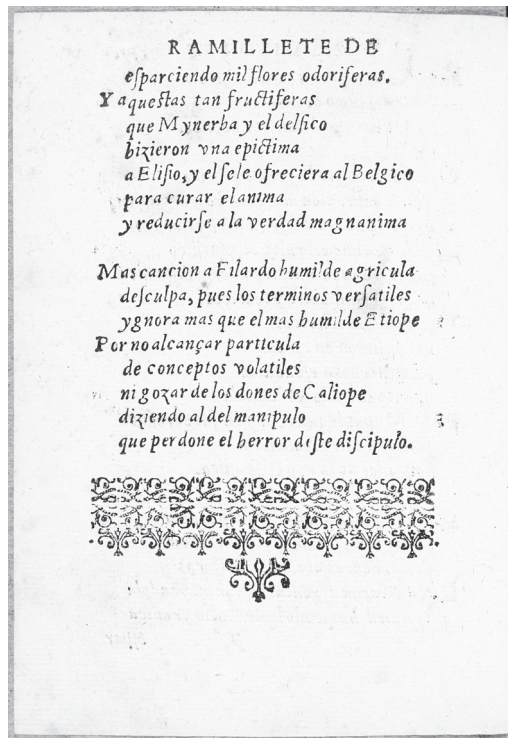 RAMILLETE DE
esparciendo mil flores odoriferas.
Y aquestas tan fructiferas
que Mynerba y el delfico
hizieron vna epictima
a Elisio, y el se le ofreciera al Belgico
para curar el anima
y reducirse a la verdad magnanima
Mas cancion a Filardo humilde agricula
desculpa, pues los terminos versatiles
ygnora mas que el mas humilde Etiope
Por no alcançar particula
de conceptos volatiles
ni gozar de los dones de Caliope
diziendo al del manipulo
que perdone el herror deste discipulo.